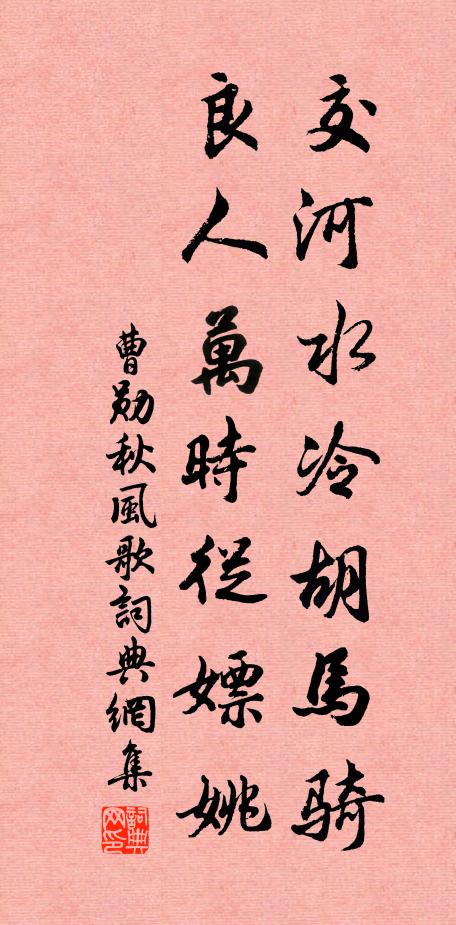 交河水冷胡馬驕
良人萬時從嫖姚
曹勛秋風歌詞典網集
詞典网印